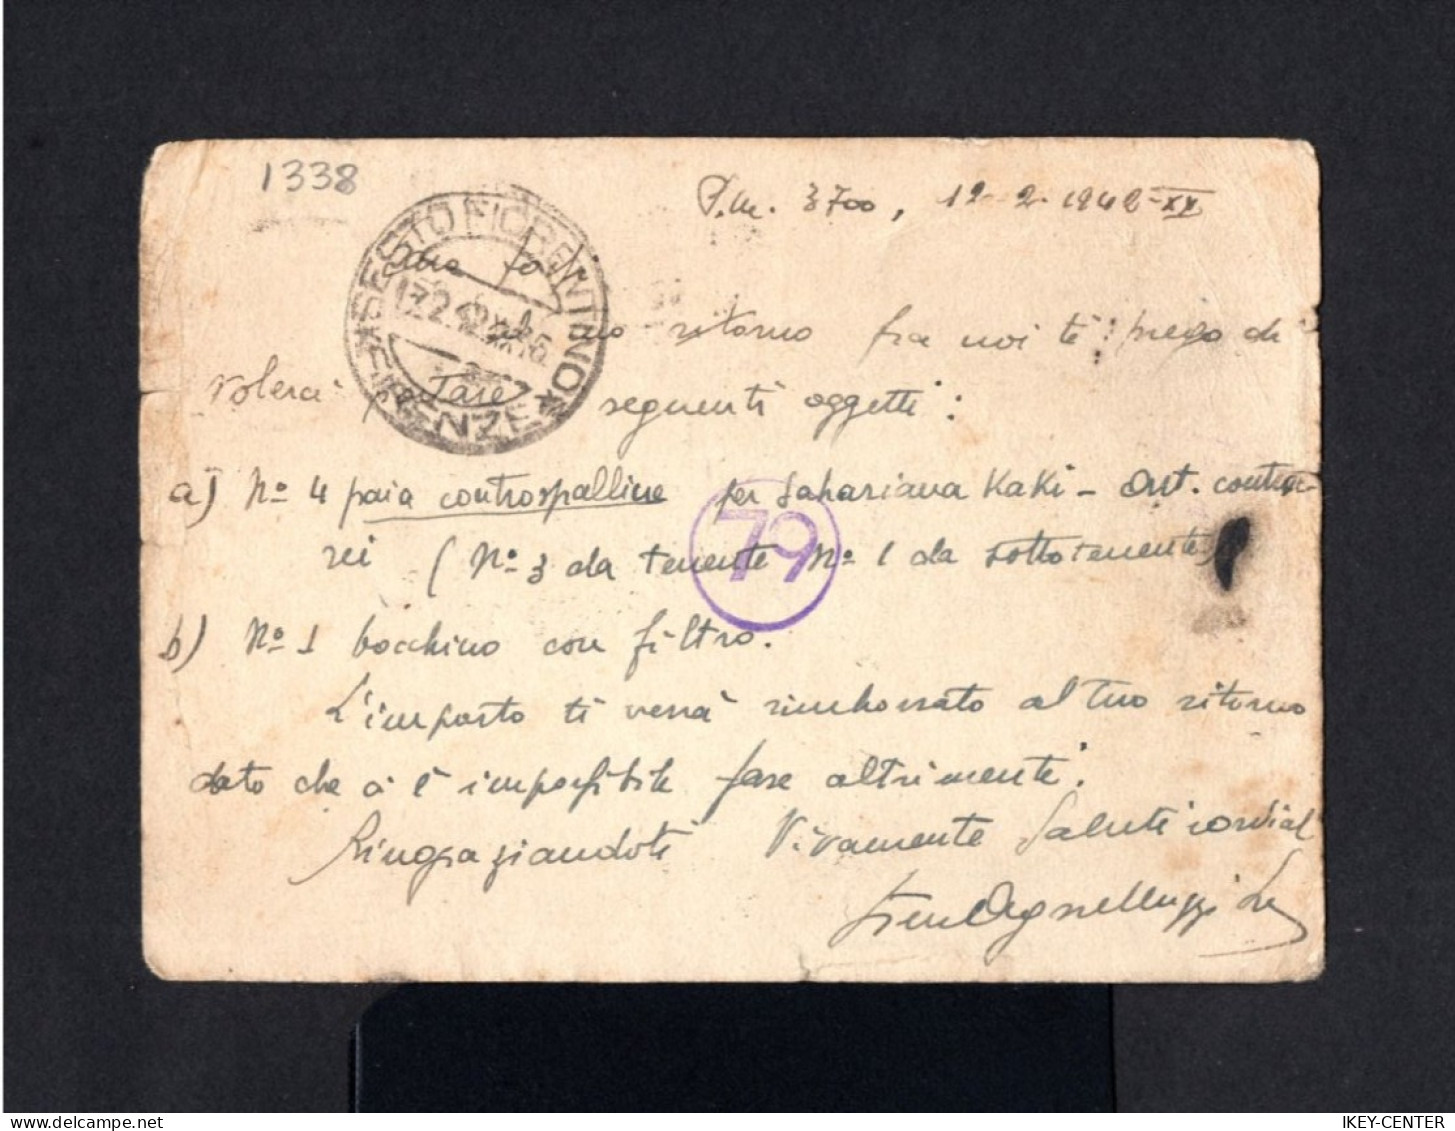 1338
P.M. 3700, 12-2-1942-XX
SESTO FIORENTINO
FIRENZE
ritorno fra noi ti prego di
volerci seguenti oggetti:
a) Nº 4 paia controspalline per Sahariana Kaki - Art. contrae-
rei (Nº 3 da tenente Nº 1 da sottotenente)
79
b) Nº 1 bocchino con filtro.
L'importo ti verrà rimborsato al tuo ritorno
dato che ci è impossibile fare altrimenti.
Ringraziandoti Vivamente Saluti cordiali
IKEY-CENTER
delcampe.net
IKEY-CENTER